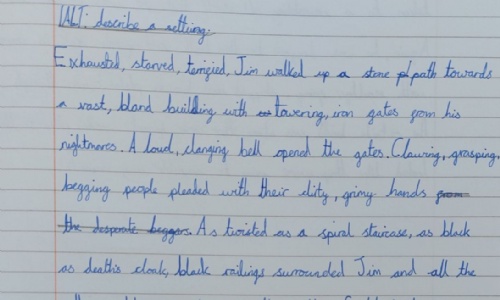 WALT: describe a setting.
Exhausted, starved, terrified, Jim walked up a stone path towards
a vast, bland building with towering, iron gates from his
nightmares. A loud, clanging bell opened the gates. Clawing, grasping,
begging people pleaded with their dity, grimy hands from
the desperate beggars. As twisted as a spiral staircase, as black
as death's cloak, black railings surrounded Jim and all the